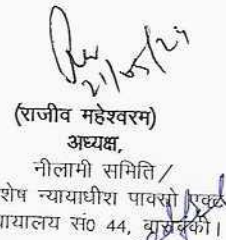 21/05/24
(राजीव महेश्वरम)
अध्यक्ष,
नीलामी समिति /
शेष न्यायाधीश पाक्सो एक्ट
यायालय सं0 44, बाराबंकी।